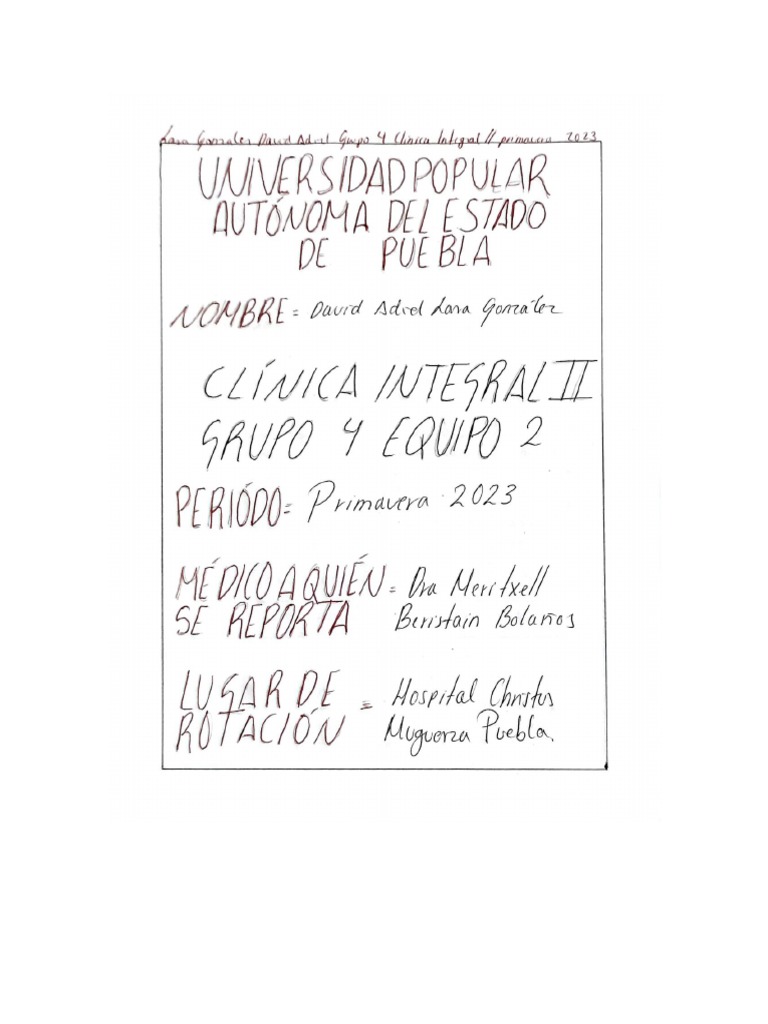 Lara González David Adriel Grupo 4 Clínica Integral II primavera 2023
UNIVERSIDAD POPULAR
AUTÓNOMA DEL ESTADO
DE PUEBLA
NOMBRE = David Adriel Lara González
CLÍNICA INTEGRAL II
GRUPO 4 EQUIPO 2
PERIÓDO = Primavera 2023
MÉDICO A QUIÉN = Dra Meritxell
SE REPORTA Beristain Bolaños
LUGAR DE = Hospital Christus
ROTACIÓN Muguerza Puebla.